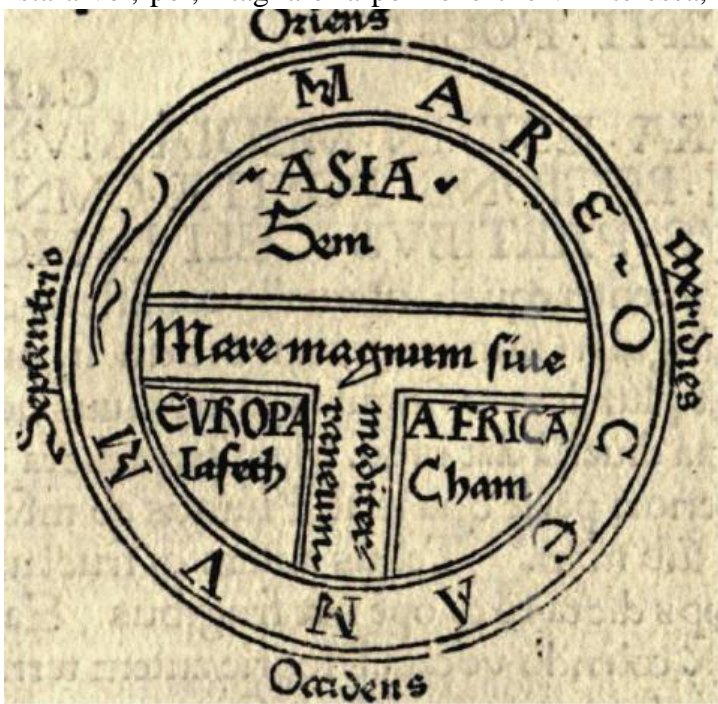 Oriens
MARE OCEANVM
ASIA
Sem
Septentrio
Meridies
Mare magnum siue
mediter=
raneum
EVROPA
Iafeth
AFRICA
Cham
Occidens